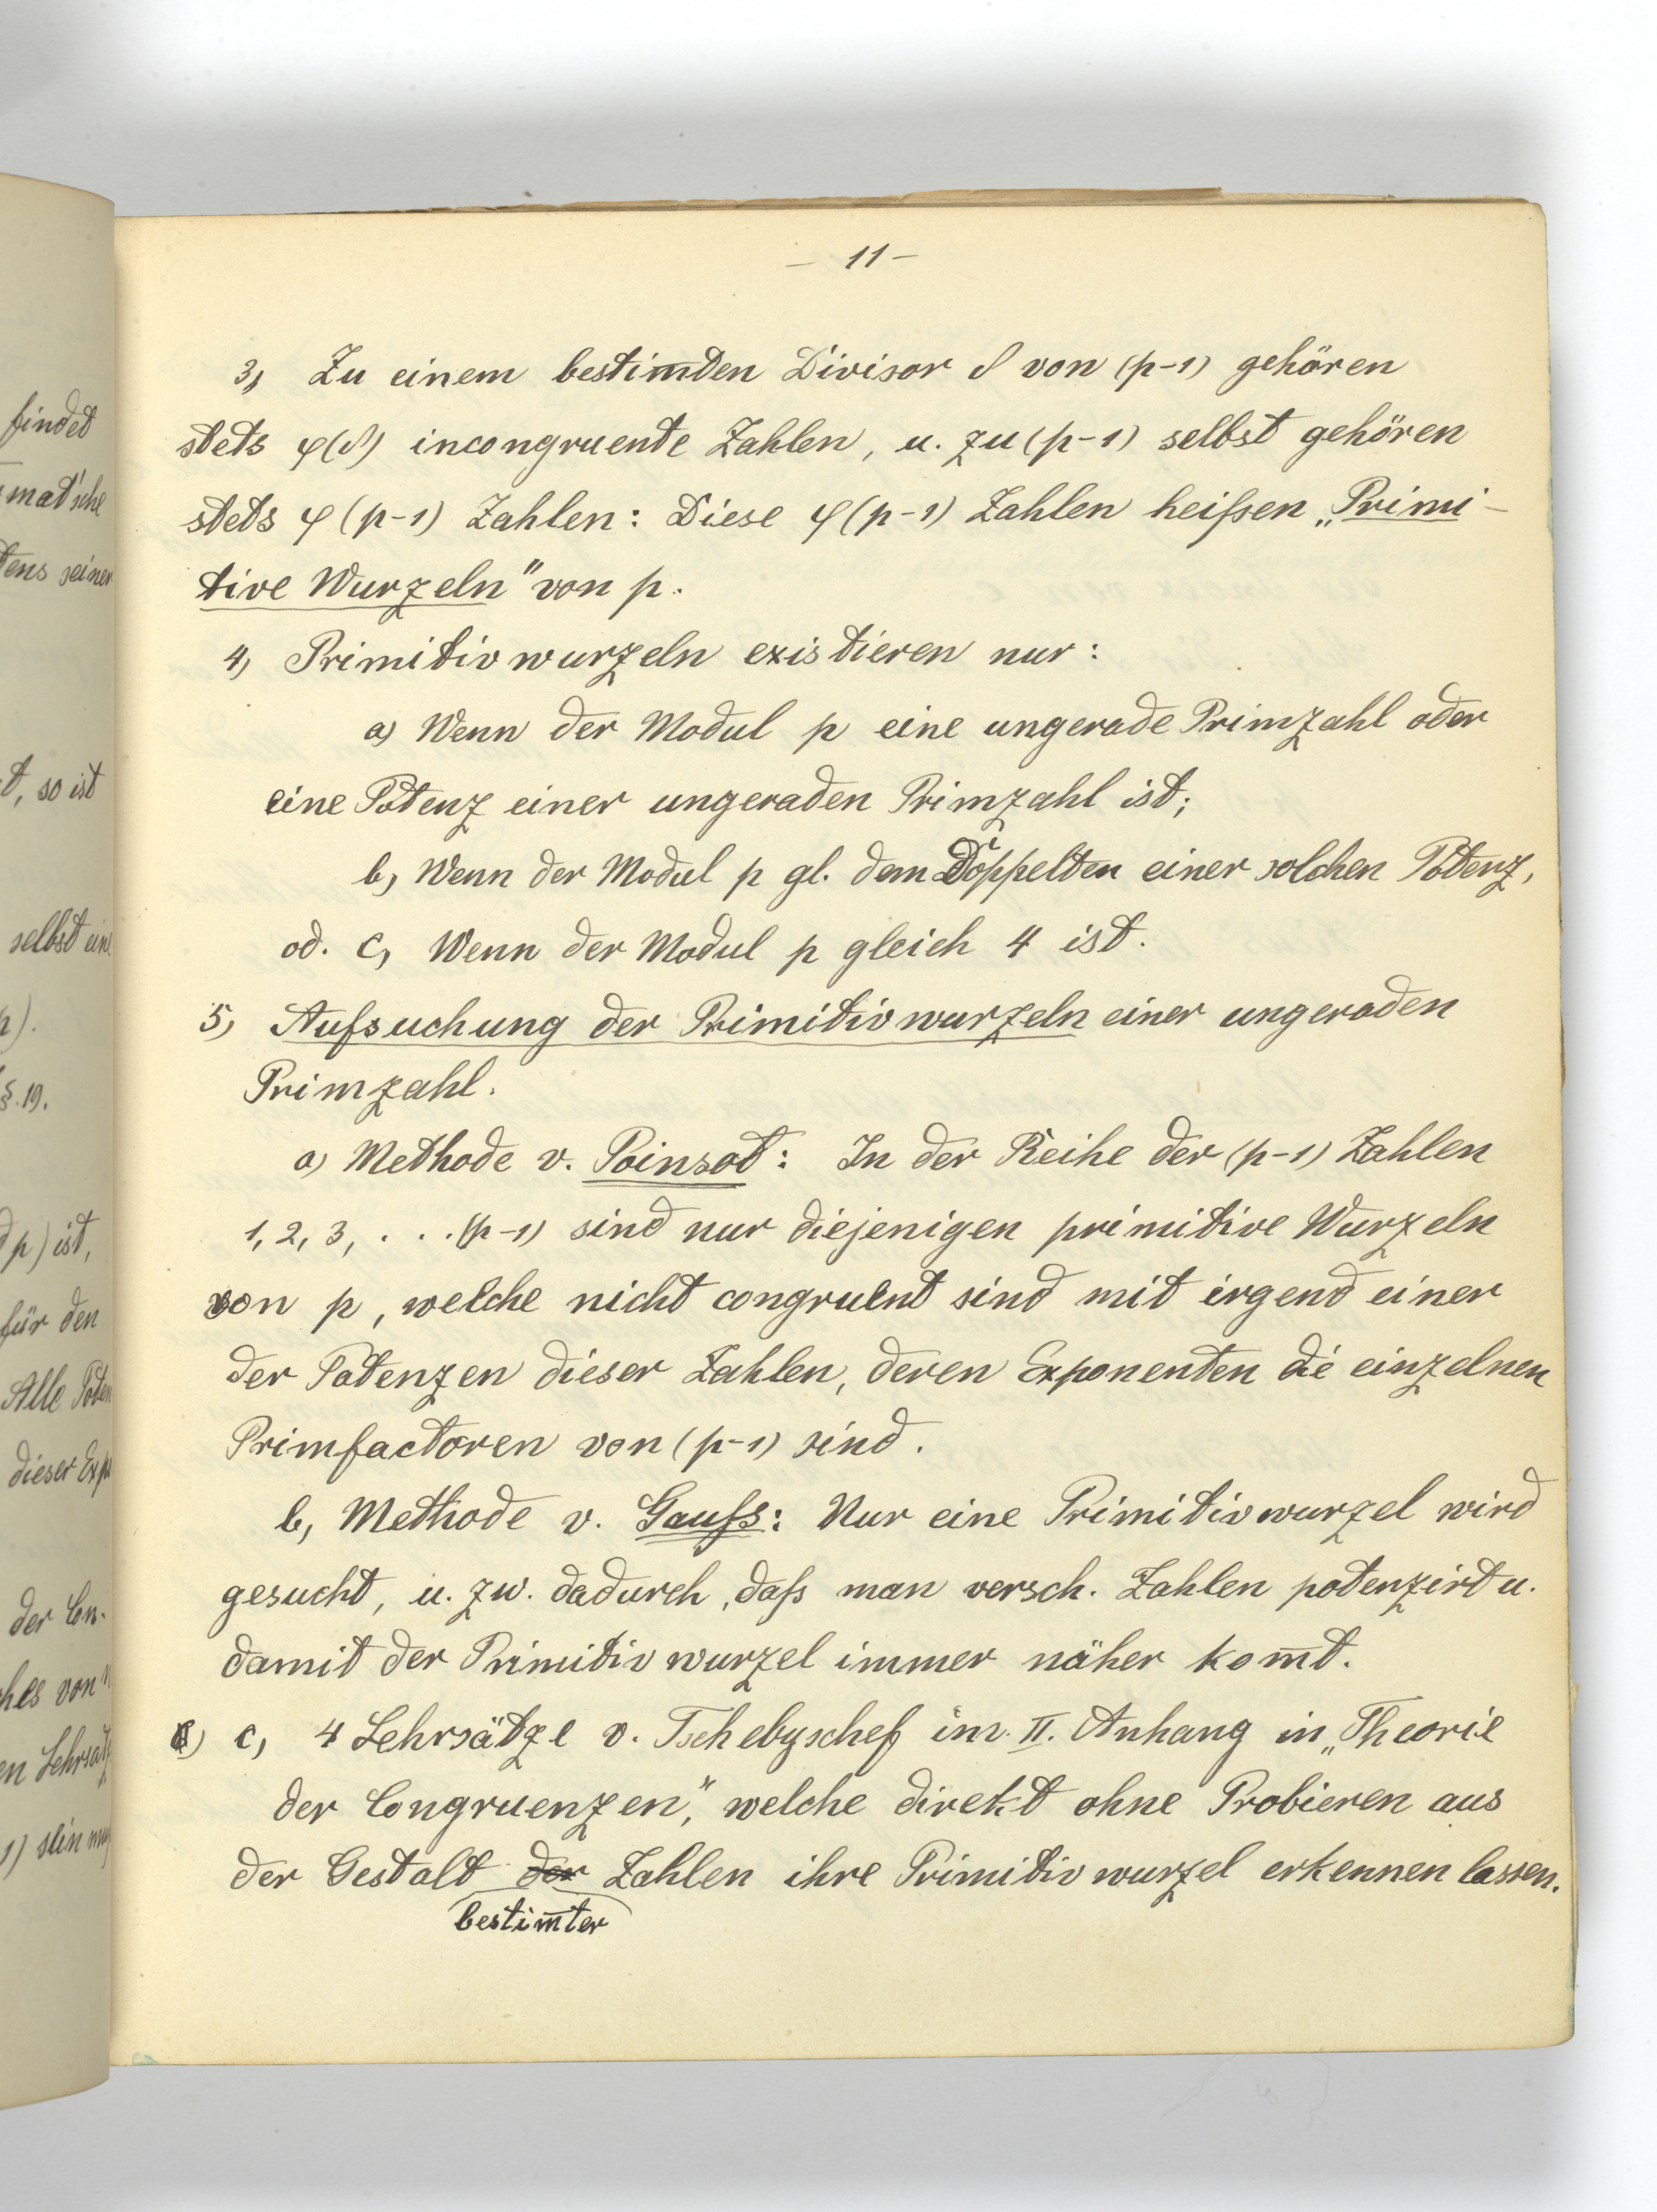 findet
mat'sche
tens seiner
t, so ist
selbst ein
h).
§.19.
d p) ist,
für den
Alle Poten
dieser Exp
der Con-
ches von n
en Lehrsatz
1) sein
– 11 –
3, Zu einem bestim̅ten Divisor δ von (p-1) gehören
stets φ(δ) incongruente Zahlen, u. zu (p-1) selbst gehören
stets φ (p-1) Zahlen: Diese φ (p-1) Zahlen heißen „Primi-
tive Wurzeln" von p.
4, Primitivwurzeln existieren nur:
a) Wenn der Modul p eine ungerade Primzahl oder
eine Potenz einer ungeraden Primzahl ist;
b, Wenn der Modul p gl. dem Doppelten einer solchen Potenz,
od. c, Wenn der Modul p gleich 4 ist.
5, Aufsuchung der Primitivwurzeln einer ungeraden
Primzahl.
a) Methode v. Poinsot: In der Reihe der (p-1) Zahlen
1, 2, 3, . . . (p-1) sind nur diejenigen primitive Wurzeln
von p, welche nicht congruent sind mit irgend einer
der Potenzen dieser Zahlen, deren Exponenten die einzelnen
Primfactoren von (p-1) sind.
b, Methode v. Gauß: Nur eine Primitivwurzel wird
gesucht, u. zw. dadurch, daß man versch. Zahlen potenzirt u.
damit der Primitivwurzel immer näher kom̅t.
c, 4 Lehrsätze v. Tschebyschef im II. Anhang in „Theorie
der Congruenzen", welche direkt ohne Probieren aus
der Gestalt der Zahlen ihre Primitivwurzel erkennen lassen.
bestim̅ter